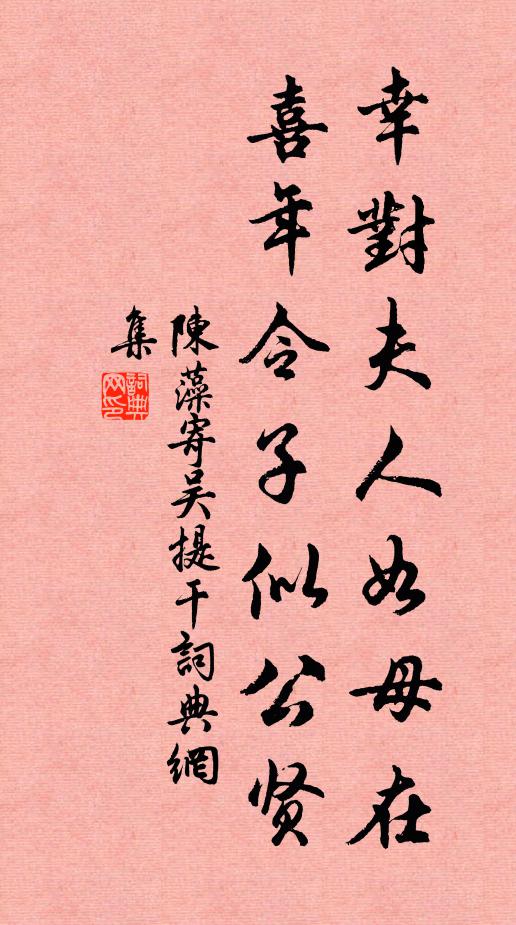 幸對夫人如母在
喜年令子似公賢
陳藻寄吴提干詞典網
集
詞典網印